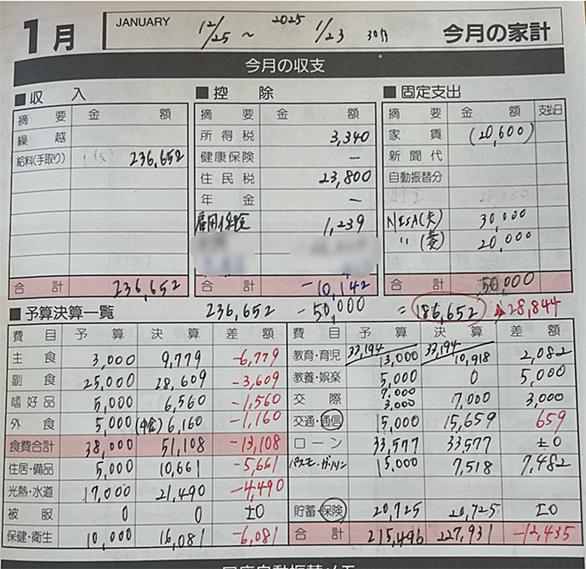 1月 JANUARY 12/25 ~ 2025 1/23 30日 今月の家計
今月の収支
■収入
摘要 金額
繰越
給料(手取り) 236,652
合計 236,652
■控除
摘要 金額
所得税 3,340
健康保険 —
住民税 23,800
年金 —
雇用保険 1,239
合計 -10,142
■固定支出
摘要 金額 支払日
家賃 (20,600)
新聞代
自動振替分
NISA(夫) 30,000
〃(妻) 20,000
合計 50,000
■予算決算一覧 236,652 - 50,000 = 186,652 28,844
費目 予算 決算 差額
主食 3,000 9,779 -6,779
副食 25,000 28,609 -3,609
嗜好品 5,000 6,560 -1,560
外食 5,000 6,160 -1,160
食費合計 38,000 51,108 -13,108
住居・備品 5,000 10,661 -5,661
光熱・水道 17,000 21,490 -4,490
被服 0 0 ±0
保健・衛生 10,000 16,081 -6,081
費目 予算 決算 差額
教育・育児 33,194 13,000 33,194 10,918 2,082
教養・娯楽 5,000 0 5,000
交際 7,000 3,000 7,000 3,000
交通・通信 15,000 15,659 659
ローン 33,577 33,577 ±0
パスモ・ガソリン 15,000 7,518 7,482
貯蓄・保険 20,725 20,725 ±0
合計 215,496 227,931 -12,435